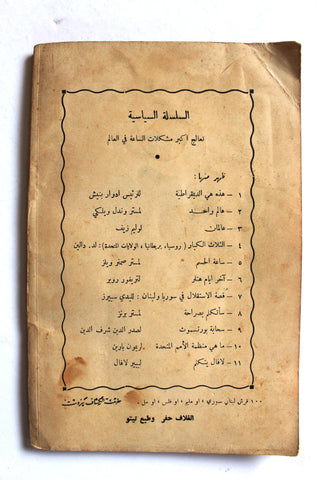 السلسلة السياسية
تعالج اكبر مشكلات الساعة في العالم
ظهر منها :
١ - هذه هي الديمقراطية للرئيس ادوار بنيش
٢ - عالم واحد لمستر وندل ويلكي
٣ - عالمان لوليم زيف
٤ - الثلاث الكبار ( روسيا، بريطانيا ، الولايات المتحدة ) : لد . دالين
٥ - ساعة الحسم لمستر صمنر ويلز
٦ - آخر ايام هتلر لتريفور روبر
٧ - قصة الاستقلال في سوريا ولبنان : للليدي سبيرز
٨ - سأتكلم بصراحة لمستر برنز
٩ - سحابة بورتسموث لصدر الدين شرف الدين
١٠ - ما هي منظمة الأمم المتحدة لريمون بارين
١١ - لافال يتكلم لبيير لافال
١٠٠ قرش لبناني سوري ، او مليم ، او فلس ، او مل .
الغلاف حفر وطبع تيبو